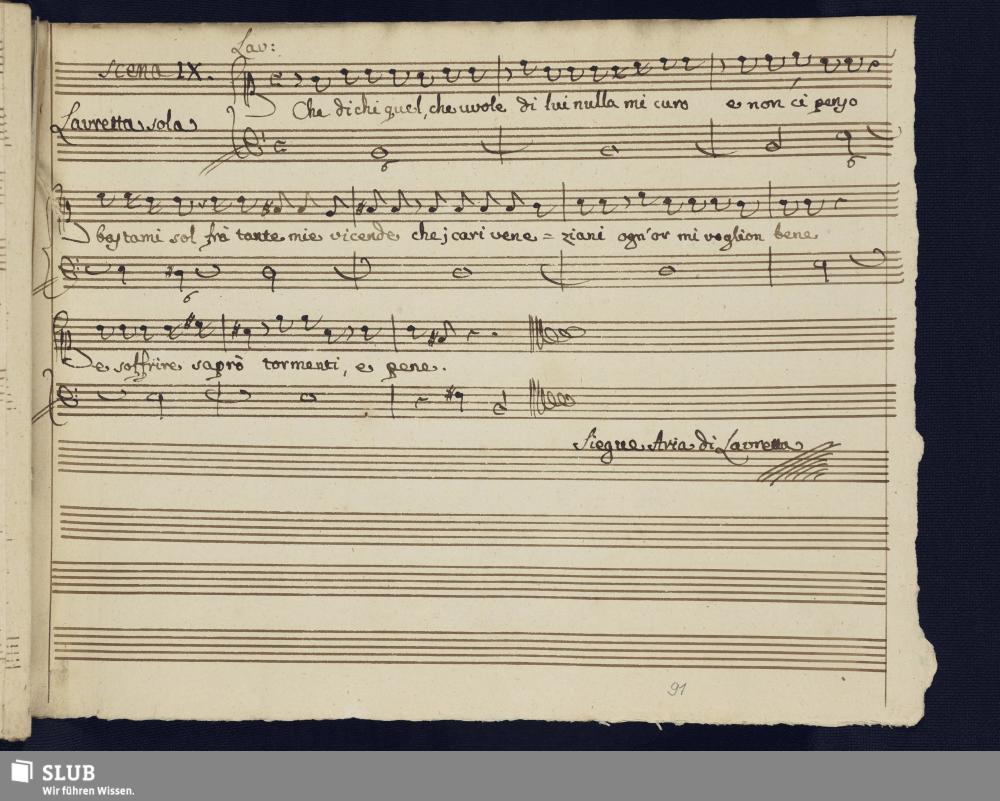 Lau:
Scena IX.
Lauretta sola
Che dichi quel, che vuole di lui nulla mi curo e non ci penso
bastami sol frà tante mie vicende che i cari vene = ziani ogn'or mi voglion bene
e soffrire saprò tormenti, e pene.
Siegue Aria di Lauretta
91
SLUB
Wir führen Wissen.